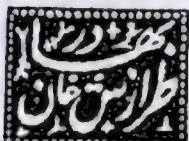 بهادر
طرازش خان